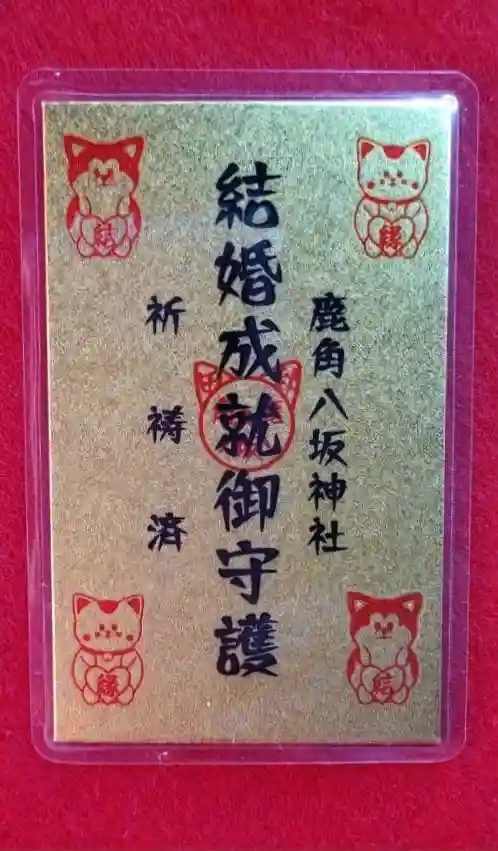 鹿角八坂神社
結婚成就御守護
祈祷済
結
縁
縁
結